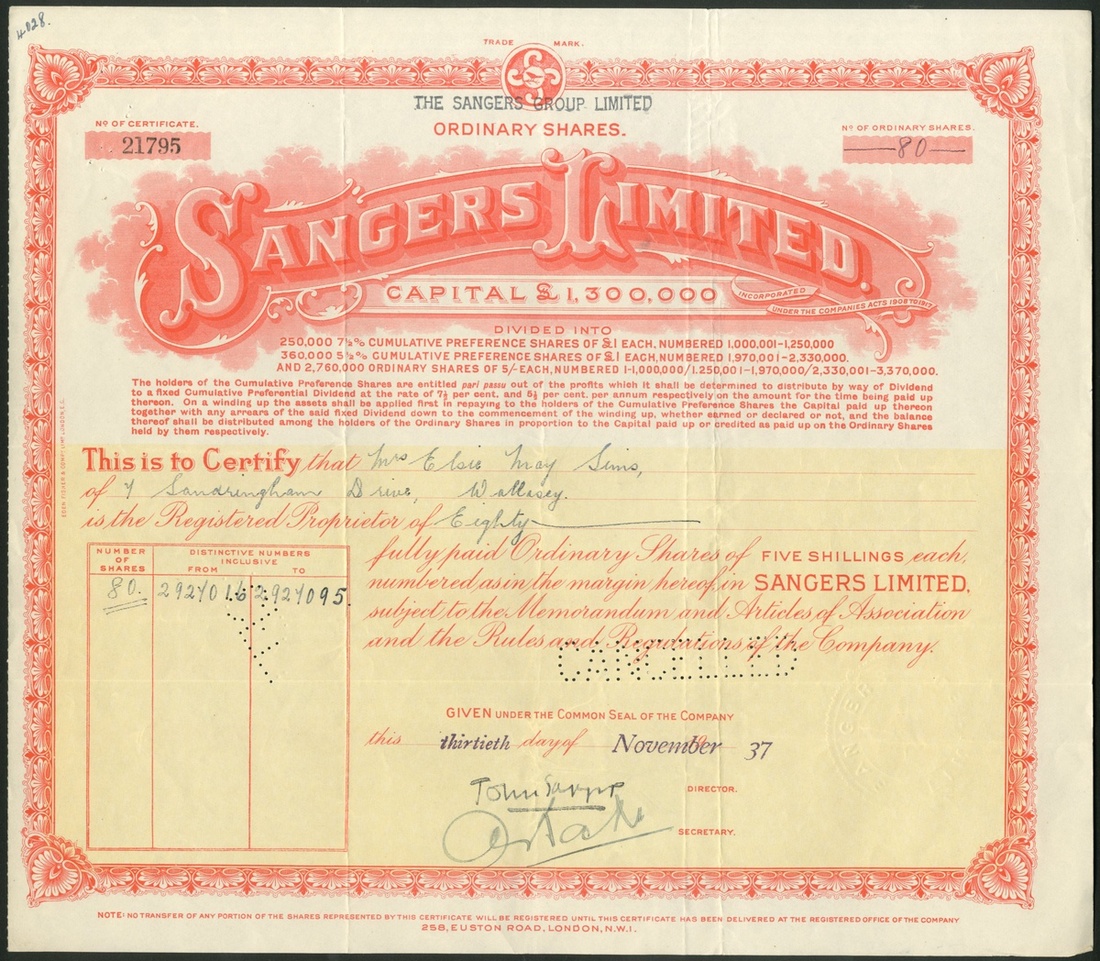 4028.
TRADE MARK.
THE SANGERS GROUP LIMITED
ORDINARY SHARES.
Nº OF CERTIFICATE.
21795
Nº OF ORDINARY SHARES.
80
SANGERS LIMITED.
CAPITAL £1,300,000
INCORPORATED
UNDER THE COMPANIES ACTS 1908 TO 1917
DIVIDED INTO
250,000 7½% CUMULATIVE PREFERENCE SHARES OF £1 EACH, NUMBERED 1,000,001-1,250,000
360,000 5½% CUMULATIVE PREFERENCE SHARES OF £1 EACH, NUMBERED 1,970,001-2,330,000.
AND 2,760,000 ORDINARY SHARES OF 5/- EACH, NUMBERED 1-1,000,000/1,250,001-1,970,000/2,330,001-3,370,000.
The holders of the Cumulative Preference Shares are entitled pari passu out of the profits which it shall be determined to distribute by way of Dividend
to a fixed Cumulative Preferential Dividend at the rate of 7½ per cent. and 5½ per cent. per annum respectively on the amount for the time being paid up
thereon. On a winding up the assets shall be applied first in repaying to the holders of the Cumulative Preference Shares the Capital paid up thereon
together with any arrears of the said fixed Dividend down to the commencement of the winding up, whether earned or declared or not, and the balance
thereof shall be distributed among the holders of the Ordinary Shares in proportion to the Capital paid up or credited as paid up on the Ordinary Shares
held by them respectively.
This is to Certify that Mrs Elsie May Sims,
of 7 Sandringham Drive, Wallasey.
is the Registered Proprietor of Eighty
fully paid Ordinary Shares of FIVE SHILLINGS each,
numbered as in the margin hereof, in SANGERS LIMITED,
subject to the Memorandum and Articles of Association
and the Rules and Regulations of the Company.
NUMBER OF SHARES
DISTINCTIVE NUMBERS INCLUSIVE
FROM TO
80. 2927016 2927095.
CANCELLED
GIVEN UNDER THE COMMON SEAL OF THE COMPANY
this thirtieth day of November 1937
DIRECTOR.
SECRETARY.
SANGER
NOTE: NO TRANSFER OF ANY PORTION OF THE SHARES REPRESENTED BY THIS CERTIFICATE WILL BE REGISTERED UNTIL THIS CERTIFICATE HAS BEEN DELIVERED AT THE REGISTERED OFFICE OF THE COMPANY
258, EUSTON ROAD, LONDON, N.W.1.